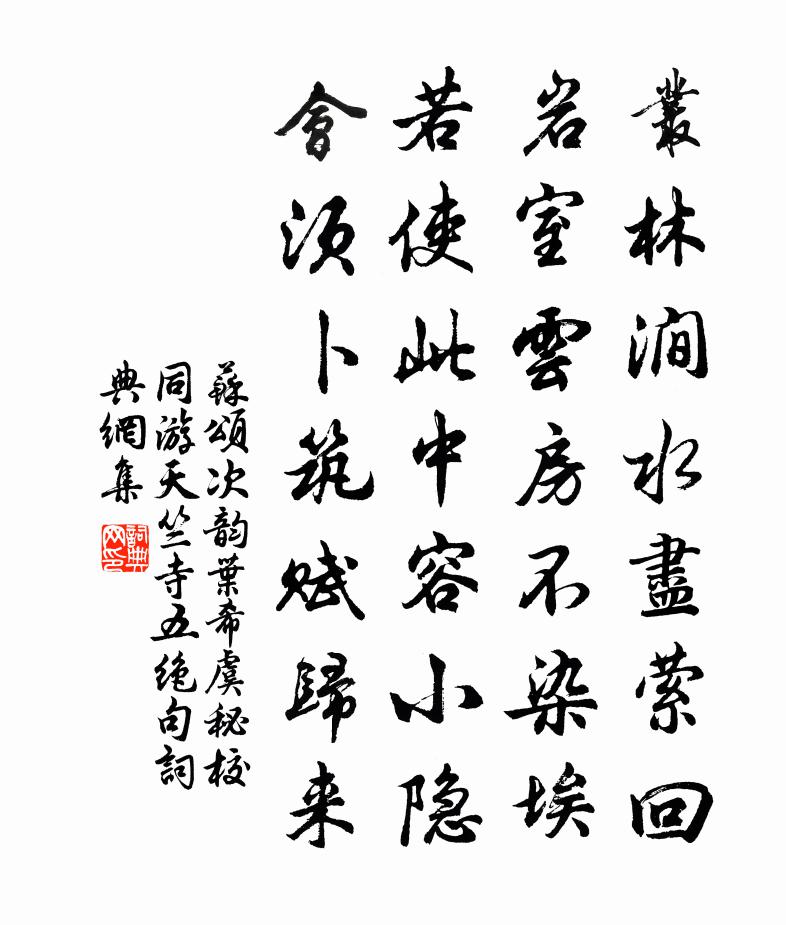 叢林澗水盡萦回
岩室雲房不染埃
若使此中容小隐
會须卜筑赋歸来
蘇頌次韵葉希虞秘校
同游天竺寺五绝句詞
典網集
詞典网印